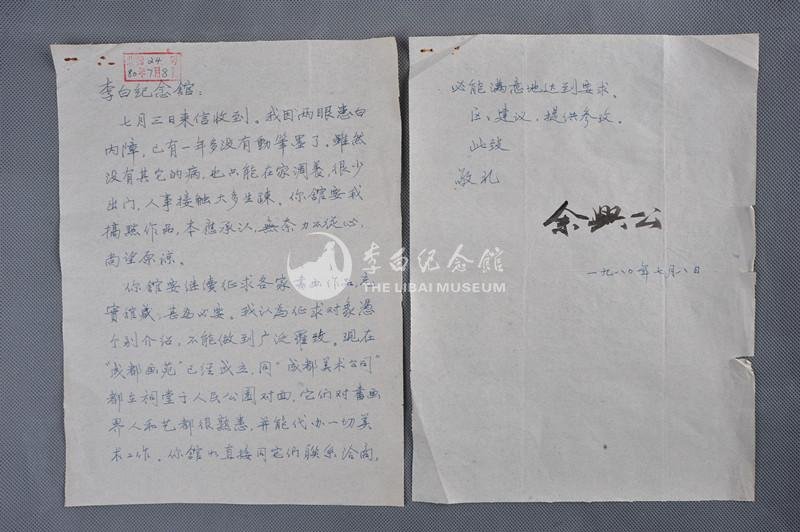 24
80年7月8
李白纪念舘：
七月三日来信收到。我因两眼患白
内障，已有一年多没有動笔墨了。雖然
没有其它的病，也只能在家调养，很少
出门，人事接触大多生疎。你舘要我
搞点作品，本應承认，無奈力不従心，
尚望原谅。
你舘要继续征求各家書画作品，充
實舘藏，甚為必要。我认為征求对象憑
个别介绍，不能做到广泛羅致。现在
“成都画苑”已经成立，同“成都美术公司”
都在祠堂于人民公園对面，它们对書画
界人和艺都很熟悉，并能代办一切美
术工作。你舘可直接同它们聯系洽商，
必能满意地达到要求。
建议，提供参攷。
此致
敬礼
余興公
一九八〇年七月八日
李白纪念館
THE LIBAI MUSEUM